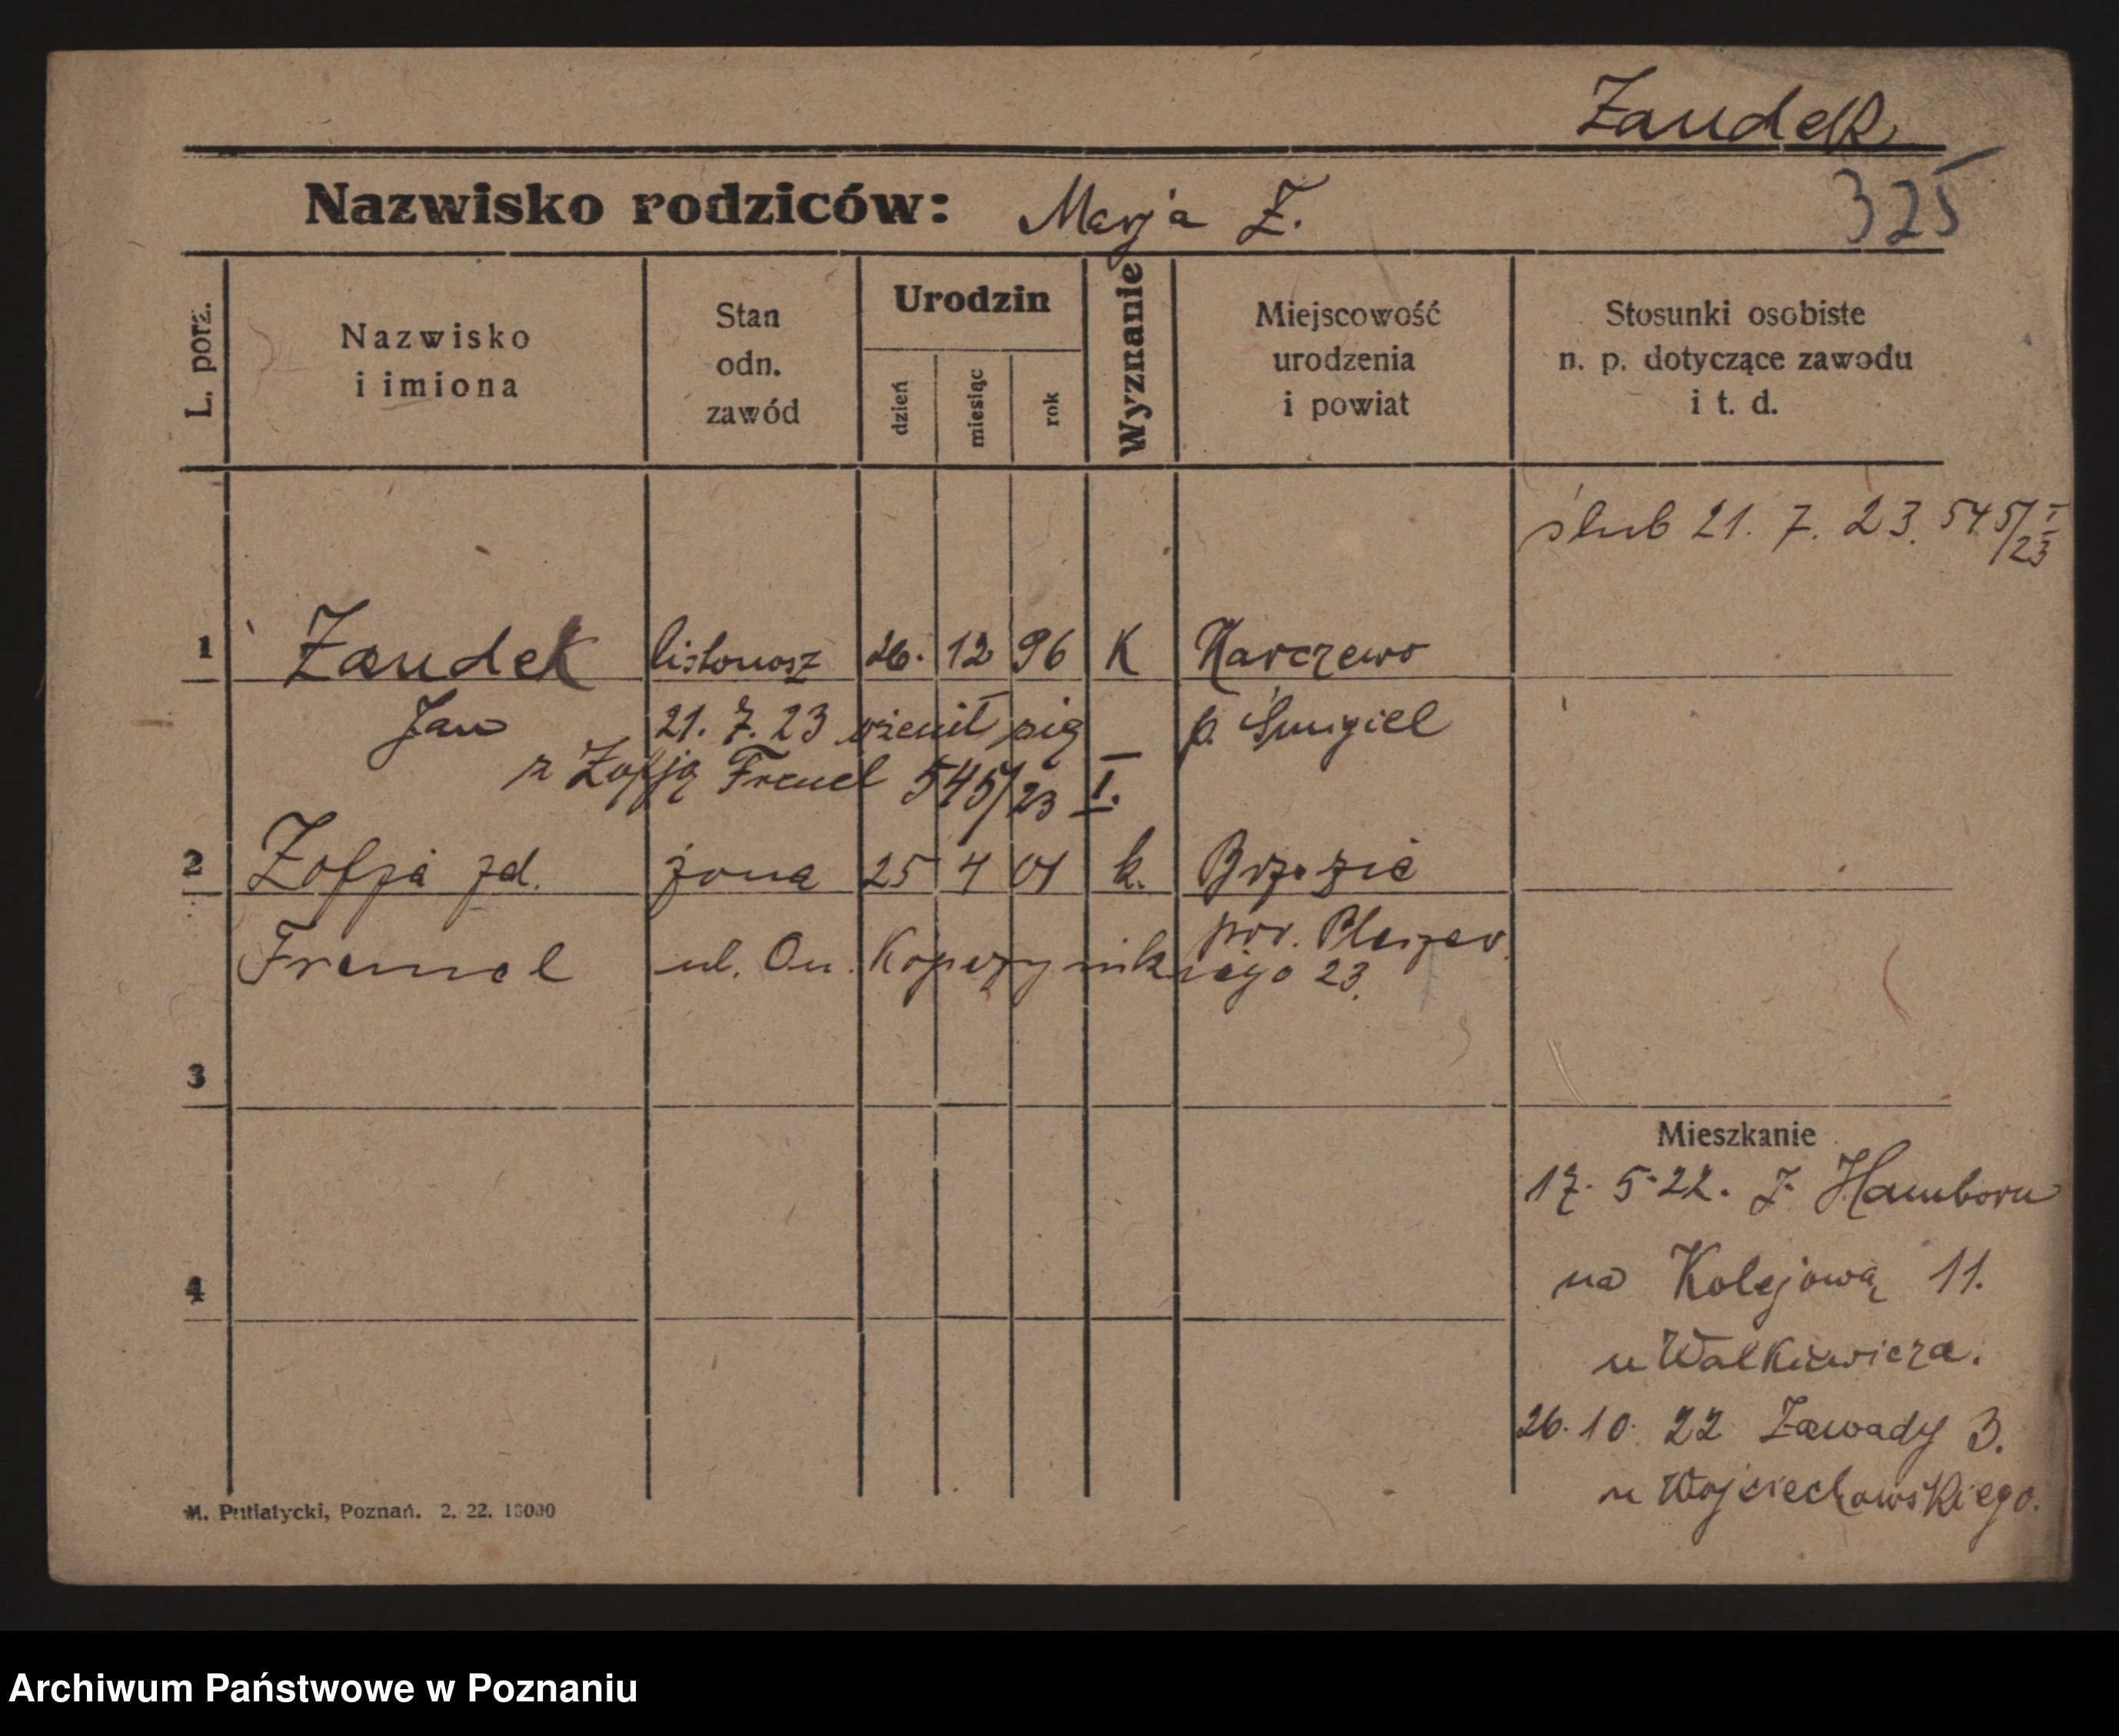 Zaudek
Nazwisko rodziców: Marja Z.
325
L. porz.
Nazwisko
i imiona
Stan
odn.
zawód
Urodzin
dzień
miesiąc
rok
Wyznanie
Miejscowość
urodzenia
i powiat
Stosunki osobiste
n. p. dotyczące zawodu
i t. d.
ślub 21. 7. 23. 545/I/23
1 Zaudek listonosz 26. 12 96 K Karczewo
Jan 21. 7. 23 ożenił się p. Śmigiel
z Zofją Frencel 545/23 I.
2 Zofja zd. żona 25 4 01 k. Brzezie
pow. Pleszew.
ul. 23.
3
4
Mieszkanie
17. 5. 22. z Hamborn
na Kolejową 11.
u Walkiewicza.
26. 10. 22 Zawady 3.
u Wojciechowskiego.
M. Putiatycki, Poznań. 2. 22. 10000
Archiwum Państwowe w Poznaniu